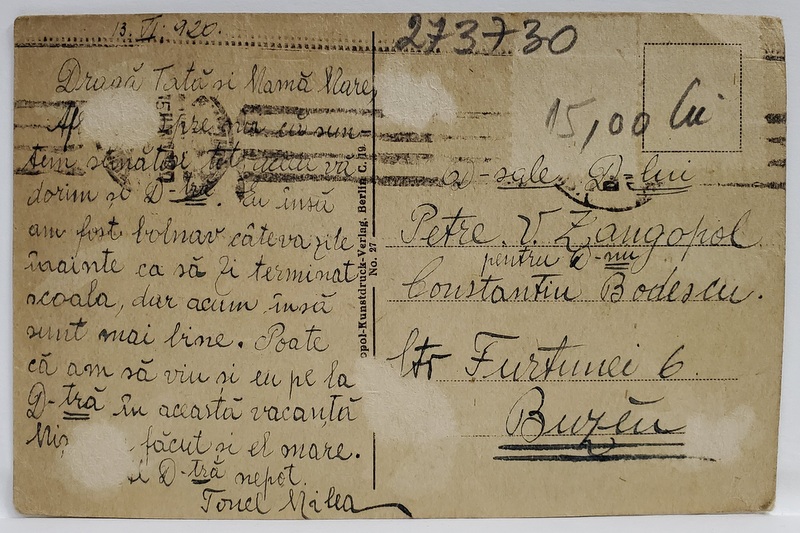 13. VI. 920.
Dragă Tată si Mamă Mare,
despre noi că sun
tem sănătosi
dorim si D-tră. Eu însă
am fost bolnav câteva zile
înainte ca să fi terminat
scoala, dar acum însă
sunt mai bine. Poate
că am să viu si eu pe la
D-tră în această vacanță
făcut si el mare.
D-tră nepot.
Ionel Milea
opol-Kunstdruck-Verlag, Berlin C. 19.
No. 27
273730
15,00 lei
D-sale D-lui
Petre. V. Zangopol
pentru D-nu
Constantin Bodescu.
Str Furtunei 6.
Buzĕu